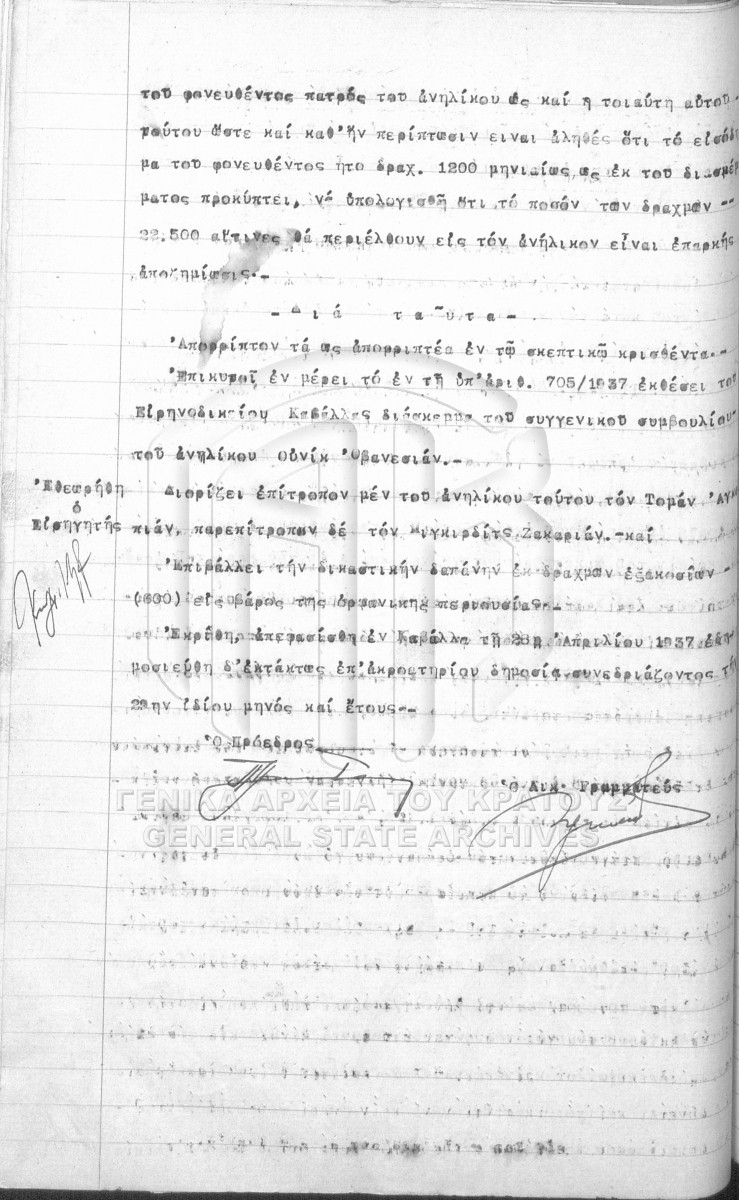 του φονευθέντος πατρός του ἀνηλίκου ὡς καί ἡ τοιαύτη αὐτοῦ
τούτου ὥστε καί καθ'ἥν περίπτωσιν ειναι ἀληθές ὅτι τό εἰσόδη
μα του φονευθέντος ἦτο δραχ. 1200 μηνιαίως ὡς ἐκ του
ματος προκύπτει, νά ὑπολογισθῆ ὅτι τό ποσόν των δραχμων --
22.500 αἵτινες θά περιέλθουν εἰς τόν ἀνήλικον εἶναι ἐπαρκής
ἀποζημίωσις.-
-Διά ταῦτα-
Ἀπορρίπτον τά ὡς ἀπορριπτέα ἐν τῷ σκεπτικῷ κριθέντα.-
Ἐπικυροῖ ἐν μέρει τό ἐν τῆ ὑπ'ἀριθ. 705/1937 ἐκθέσει του
Εἰρηνοδικείου Καβάλλας διάσκεμμα του συγγενικου συμβουλίου
του ἀνηλίκου Οὐνίκ Ὀβανεσιάν.-
Ἐθεωρήθη
ὁ
Εἰσηγητής
Διορίζει ἐπίτροπον μέν του ἀνηλίκου τούτου τόν Τομάν
πιάν, παρεπίτροπον δέ τόν Μιγκιρδίτς Ζακαριάν.-καί
Ἐπιβάλλει τήν δικαστικήν δαπάνην ἐκ δραχμων ἑξακοσίων -
(600) εἰς βάρος της ὀρφανικης περιουσίας.-
Ἐκρίθη, ἀπεφασίσθη ἐν Καβάλλα τῆ 28η Ἀπριλίου 1937 ἐδη-
μοσιεύθη δ'ἐκτάκτως ἐπ'ἀκροατηρίου δημοσία συνεδριάζοντος τήν
29ην ἰδίου μηνός καί ἔτους.-
Ὁ Πρόεδρος
Ὁ Δικ. Γραμματεύς
ΓΕΝΙΚΑ ΑΡΧΕΙΑ ΤΟΥ ΚΡΑΤΟΥΣ
GENERAL STATE ARCHIVES